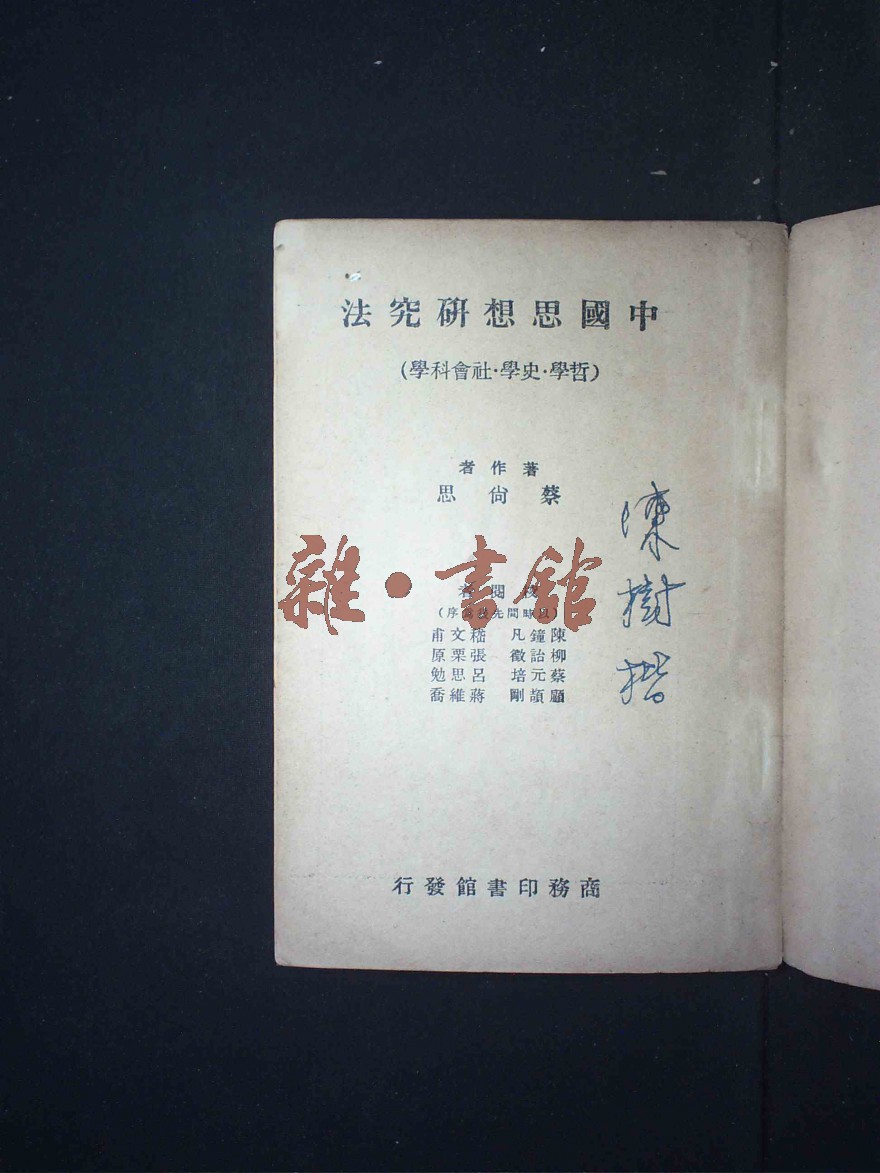 中國思想研究法
(哲學·史學·社會科學)
著作者
蔡尙思
校閱者
(以時間先後爲序)
陳鐘凡 嵇文甫
柳詒徵 張栗原
蔡元培 呂思勉
顧頡剛 蔣維喬
商務印書館發行
陳樹楷
雜·書館